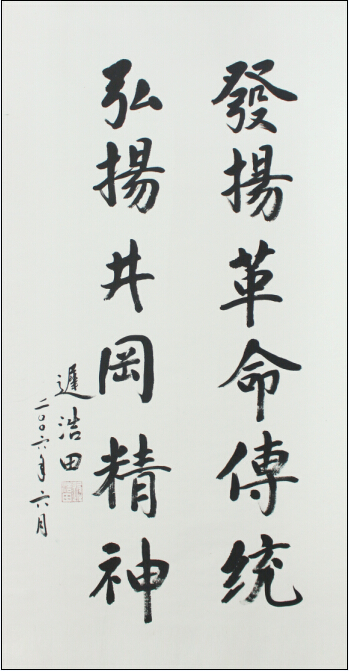 發揚革命傳統
弘揚井岡精神
遲浩田
二〇〇六年六月